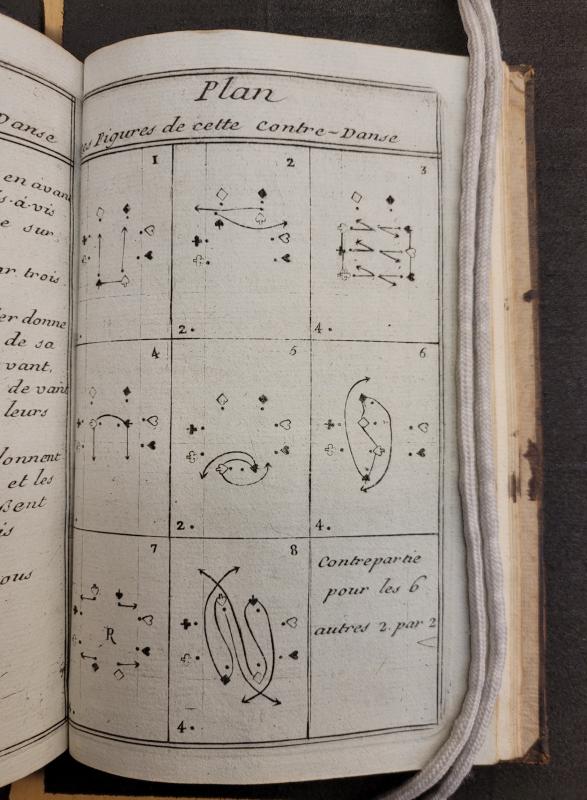 Danse
en avant
s-à-vis
e sur
ur trois
er donne
de sa
vant,
de vant
leurs
donnent
et les
ßent
is
ous
Plan
es Figures de cette Contre-Danse
1
2
3
2.
4.
4
5
6
2.
4.
7
8
R
4.
Contrepartie
pour les 6
autres 2. par 2